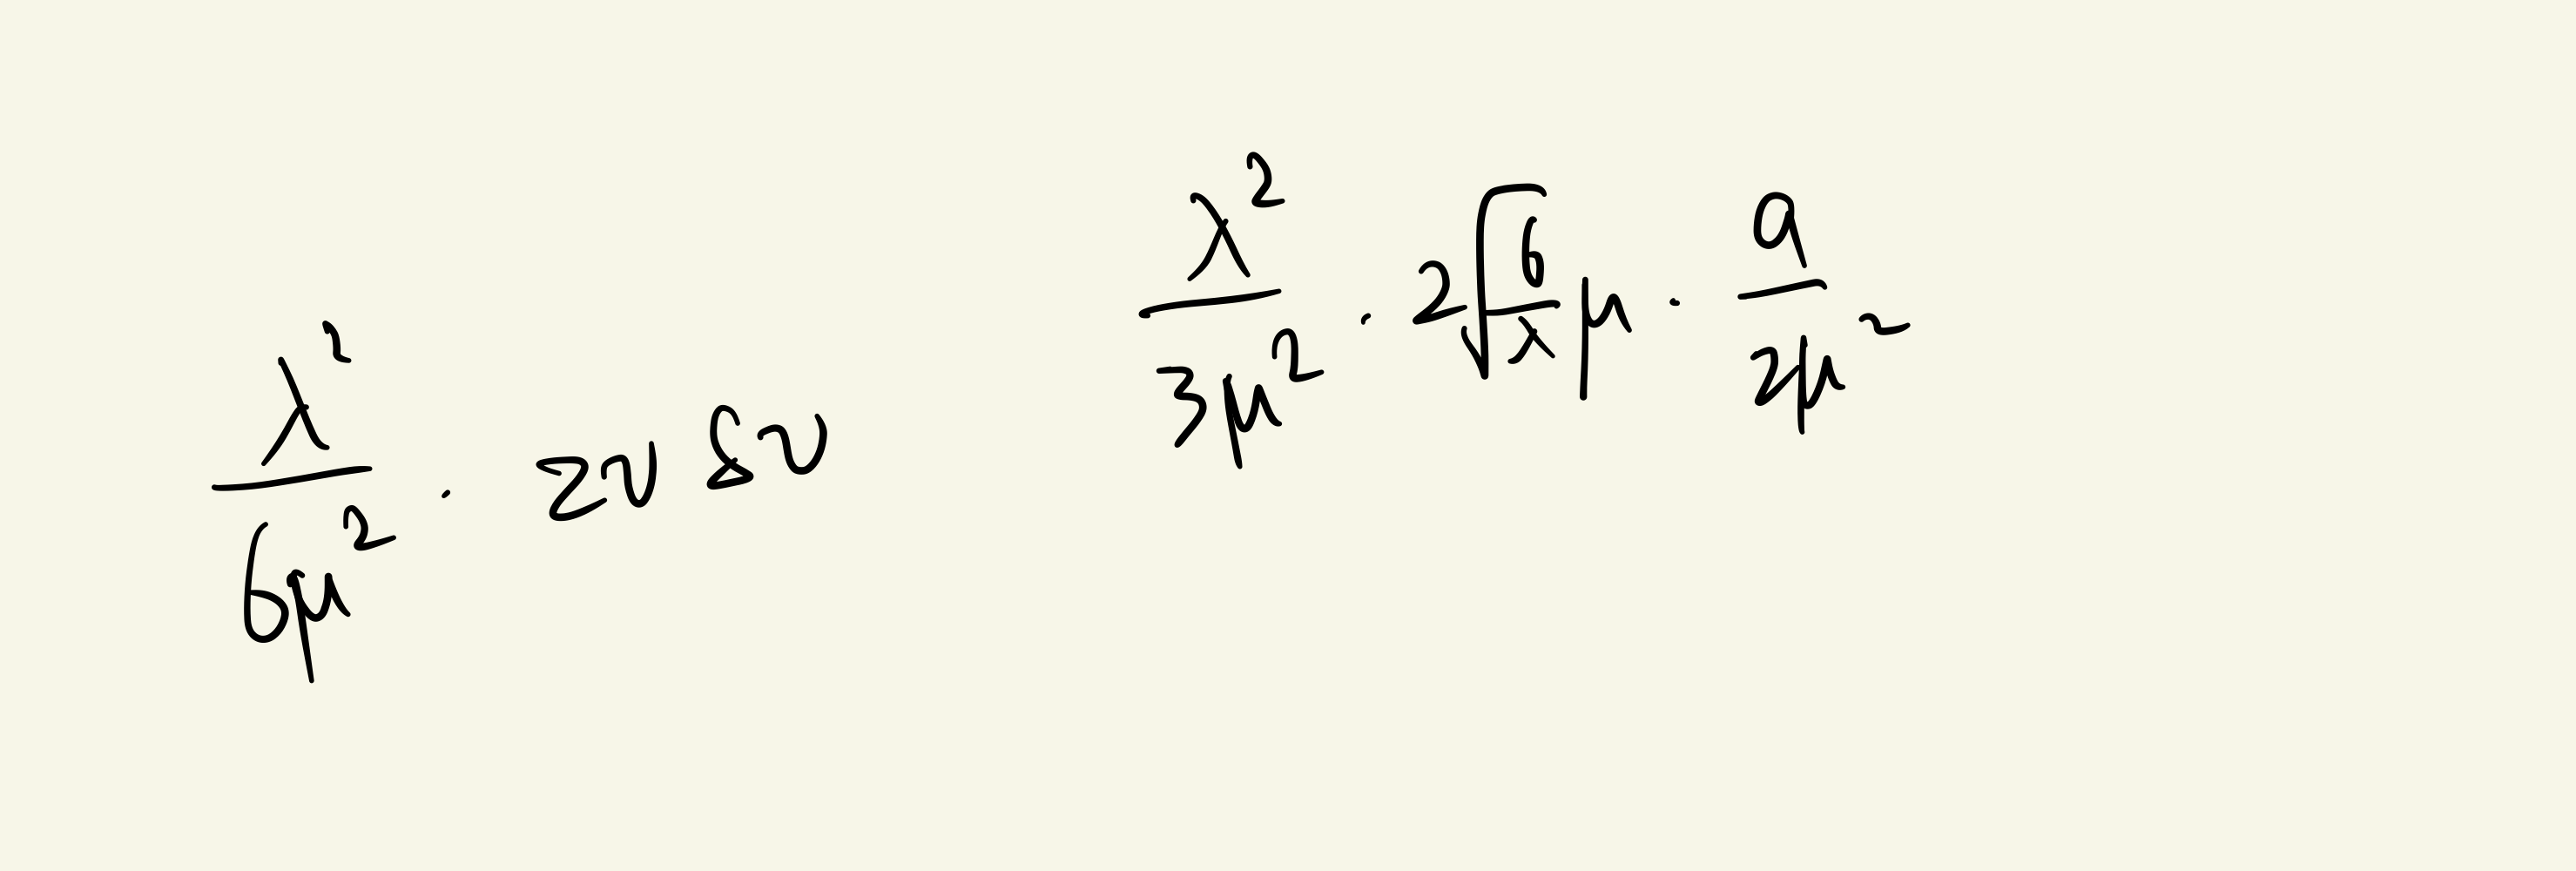 λ²/6μ² · 2v δv
λ²/3μ² · 2√(6/λ) μ · a/2μ²